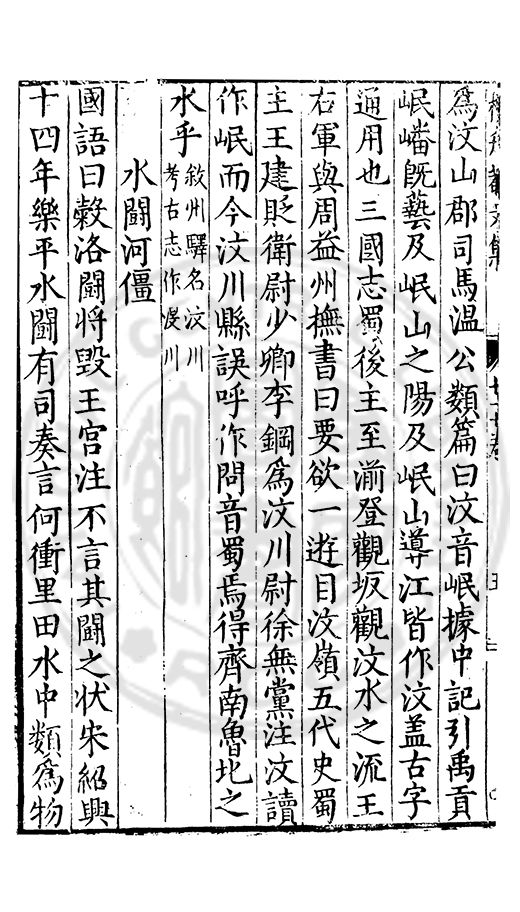 爲汶山郡司馬温公類篇曰汶音岷據史記引禹貢
岷嶓旣藝及岷山之陽及岷山導江皆作汶盖古字
通用也三國志蜀後主至湔登觀坂觀汶水之流王
右軍與周益州撫書曰要欲一遊目汶嶺五代史蜀
主王建貶衛尉少卿李鋼爲汶川尉徐無黨注汶讀
作岷而今汶川縣誤呼作問音蜀焉得齊南魯北之
水乎
敘州驛名汶川
考古志作浸川
水鬪河僵
國語曰穀洛鬪將毀王宫注不言其鬪之狀宋紹興
十四年樂平水鬪有司奏言何衝里田水中類爲物